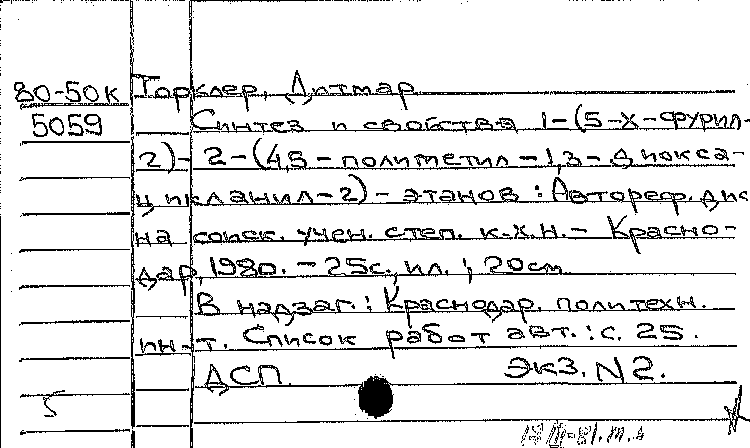 80-50к Торклер, Дитмар
5059 Синтез и свойства 1-(5-Х-фурил-
2)-2-(4,5-полиметил-1,3-диокса-
цикланил-2)-этанов: Автореф. дис
на соиск. учен. степ. к.х.н.- Красно-
дар, 1980. - 25с., ил.; 20см
В надзаг.: Краснодар. политехн.
ин-т. Список работ авт.: с. 25.
ДСП. Экз. N2.
5